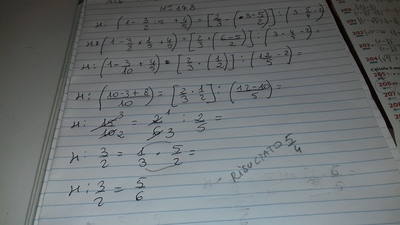 N° 148
x : (1 - 3/2 · 1/5 + 4/5) = [2/3 · (3 - 5/2)] : (3 · 4/5 - 2)
x : (1 - 3/10 + 4/5) = [2/3 · (6-5/2)] : (3 · 4/5 - 2)
x : (1 - 3/10 + 4/5) = [2/3 · (1/2)] : (12/5 - 2) =
x : (10-3+8/10) = [2/3 · 1/2] : (12-10/5) =
x : 15 3/10 2 = 2 1/6 3 : 2/5 =
x : 3/2 = 1/3 · 5/2 =
x : 3/2 = 5/6
RISULTATO 5/4